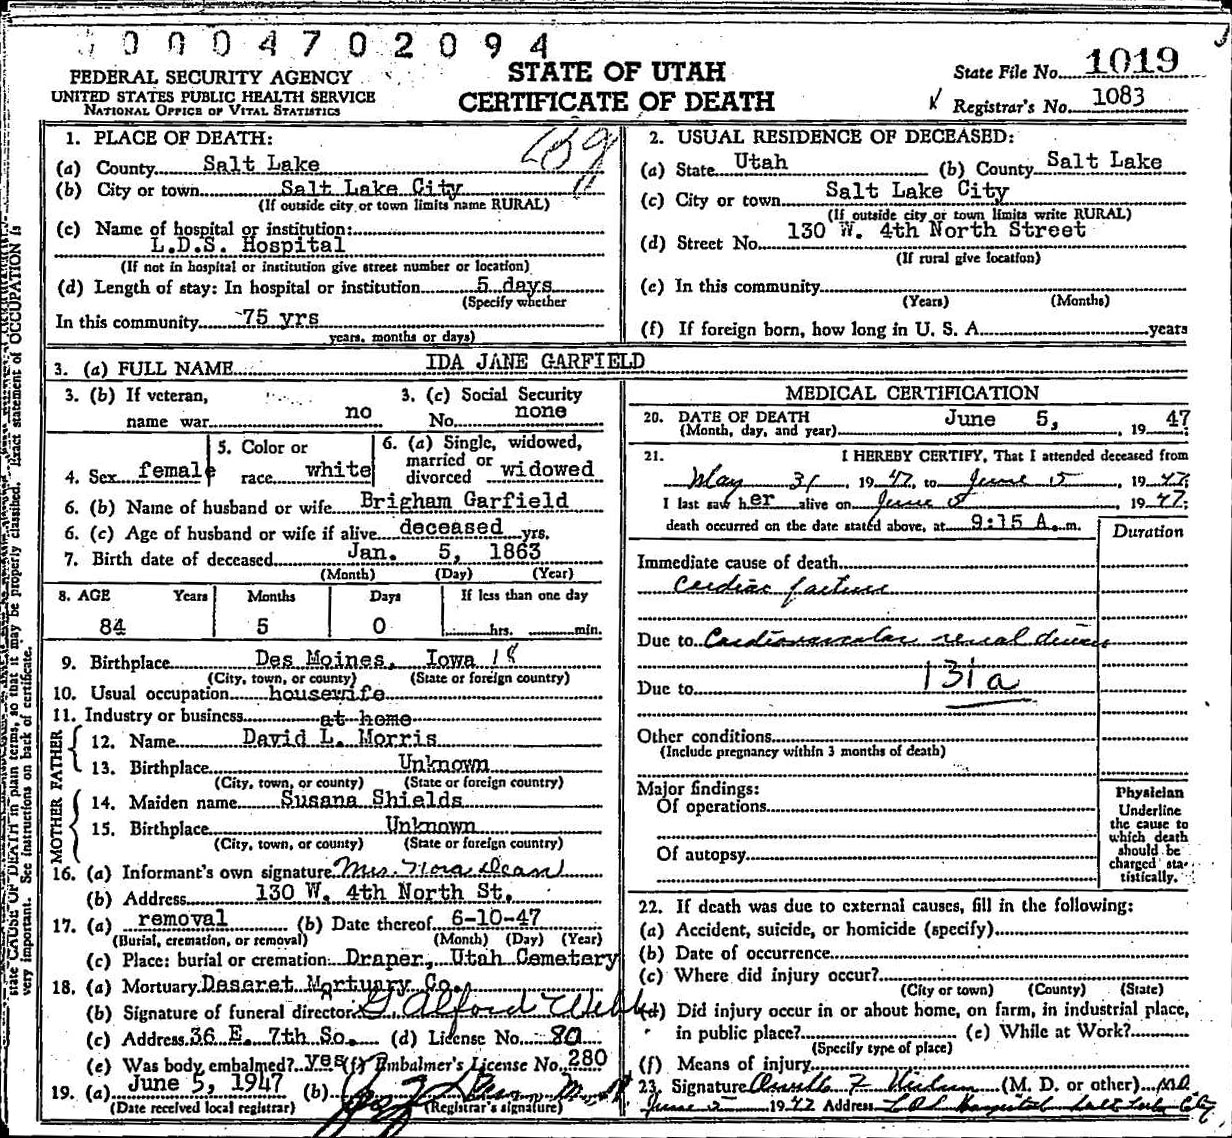 0004702094
FEDERAL SECURITY AGENCY
UNITED STATES PUBLIC HEALTH SERVICE
NATIONAL OFFICE OF VITAL STATISTICS
STATE OF UTAH
CERTIFICATE OF DEATH
State File No. 1019
Registrar's No. 1083
1. PLACE OF DEATH:
(a) County Salt Lake
(b) City or town Salt Lake City
(If outside city or town limits name RURAL)
(c) Name of hospital or institution:
L.D.S. Hospital
(If not in hospital or institution give street number or location)
(d) Length of stay: In hospital or institution 5 days
(Specify whether
In this community 75 yrs
years, months or days)
2. USUAL RESIDENCE OF DECEASED:
(a) State Utah (b) County Salt Lake
(c) City or town Salt Lake City
(If outside city or town limits write RURAL)
(d) Street No. 130 W. 4th North Street
(If rural give location)
(e) In this community
(Years) (Months)
(f) If foreign born, how long in U. S. A. years
3. (a) FULL NAME IDA JANE GARFIELD
3. (b) If veteran,
name war no
3. (c) Social Security
No. none
4. Sex female
5. Color or
race white
6. (a) Single, widowed,
married or
divorced widowed
6. (b) Name of husband or wife Brigham Garfield
6. (c) Age of husband or wife if alive deceased yrs.
7. Birth date of deceased Jan. 5, 1863
(Month) (Day) (Year)
8. AGE Years Months Days If less than one day
84 5 0 hrs. min.
9. Birthplace Des Moines, Iowa 18
(City, town, or county) (State or foreign country)
10. Usual occupation housewife
11. Industry or business at home
FATHER
12. Name David L. Morris
13. Birthplace Unknown
(City, town, or county) (State or foreign country)
MOTHER
14. Maiden name Susana Shields
15. Birthplace Unknown
(City, town, or county) (State or foreign country)
16. (a) Informant's own signature Mrs. Nora Dean
(b) Address 130 W. 4th North St.
17. (a) removal (b) Date thereof 6-10-47
(Burial, cremation, or removal) (Month) (Day) (Year)
(c) Place: burial or cremation: Draper, Utah Cemetery
18. (a) Mortuary Desaret Mortuary Co.
(b) Signature of funeral director G Alford Webb
(c) Address 36 E. 7th So. (d) License No. 80
(e) Was body embalmed? yes (f) Embalmer's License No. 280
19. (a) June 5, 1947 (b)
(Date received local registrar) (Registrar's signature)
MEDICAL CERTIFICATION
20. DATE OF DEATH June 5, 1947
(Month, day, and year)
21. I HEREBY CERTIFY, That I attended deceased from
May 31, 1947, to June 5, 1947;
I last saw her alive on June 5 1947;
death occurred on the date stated above, at 9:15 A. m.
Duration
Immediate cause of death
Cardiac failure
Due to Cardiovascular renal disease
Due to 131a
Other conditions
(Include pregnancy within 3 months of death)
Major findings:
Of operations
Of autopsy
Physician
Underline
the cause to
which death
should be
charged sta-
tistically.
22. If death was due to external causes, fill in the following:
(a) Accident, suicide, or homicide (specify)
(b) Date of occurrence
(c) Where did injury occur?
(City or town) (County) (State)
(d) Did injury occur in or about home, on farm, in industrial place,
in public place? (e) While at Work?
(Specify type of place)
(f) Means of injury
23. Signature (M. D. or other) MD
June 5 1947 Address LDS Hospital Salt Lake City
state CAUSE OF DEATH in plain terms, so that it may be properly classified. Exact statement of OCCUPATION is
very important. See instructions on back of certificate.